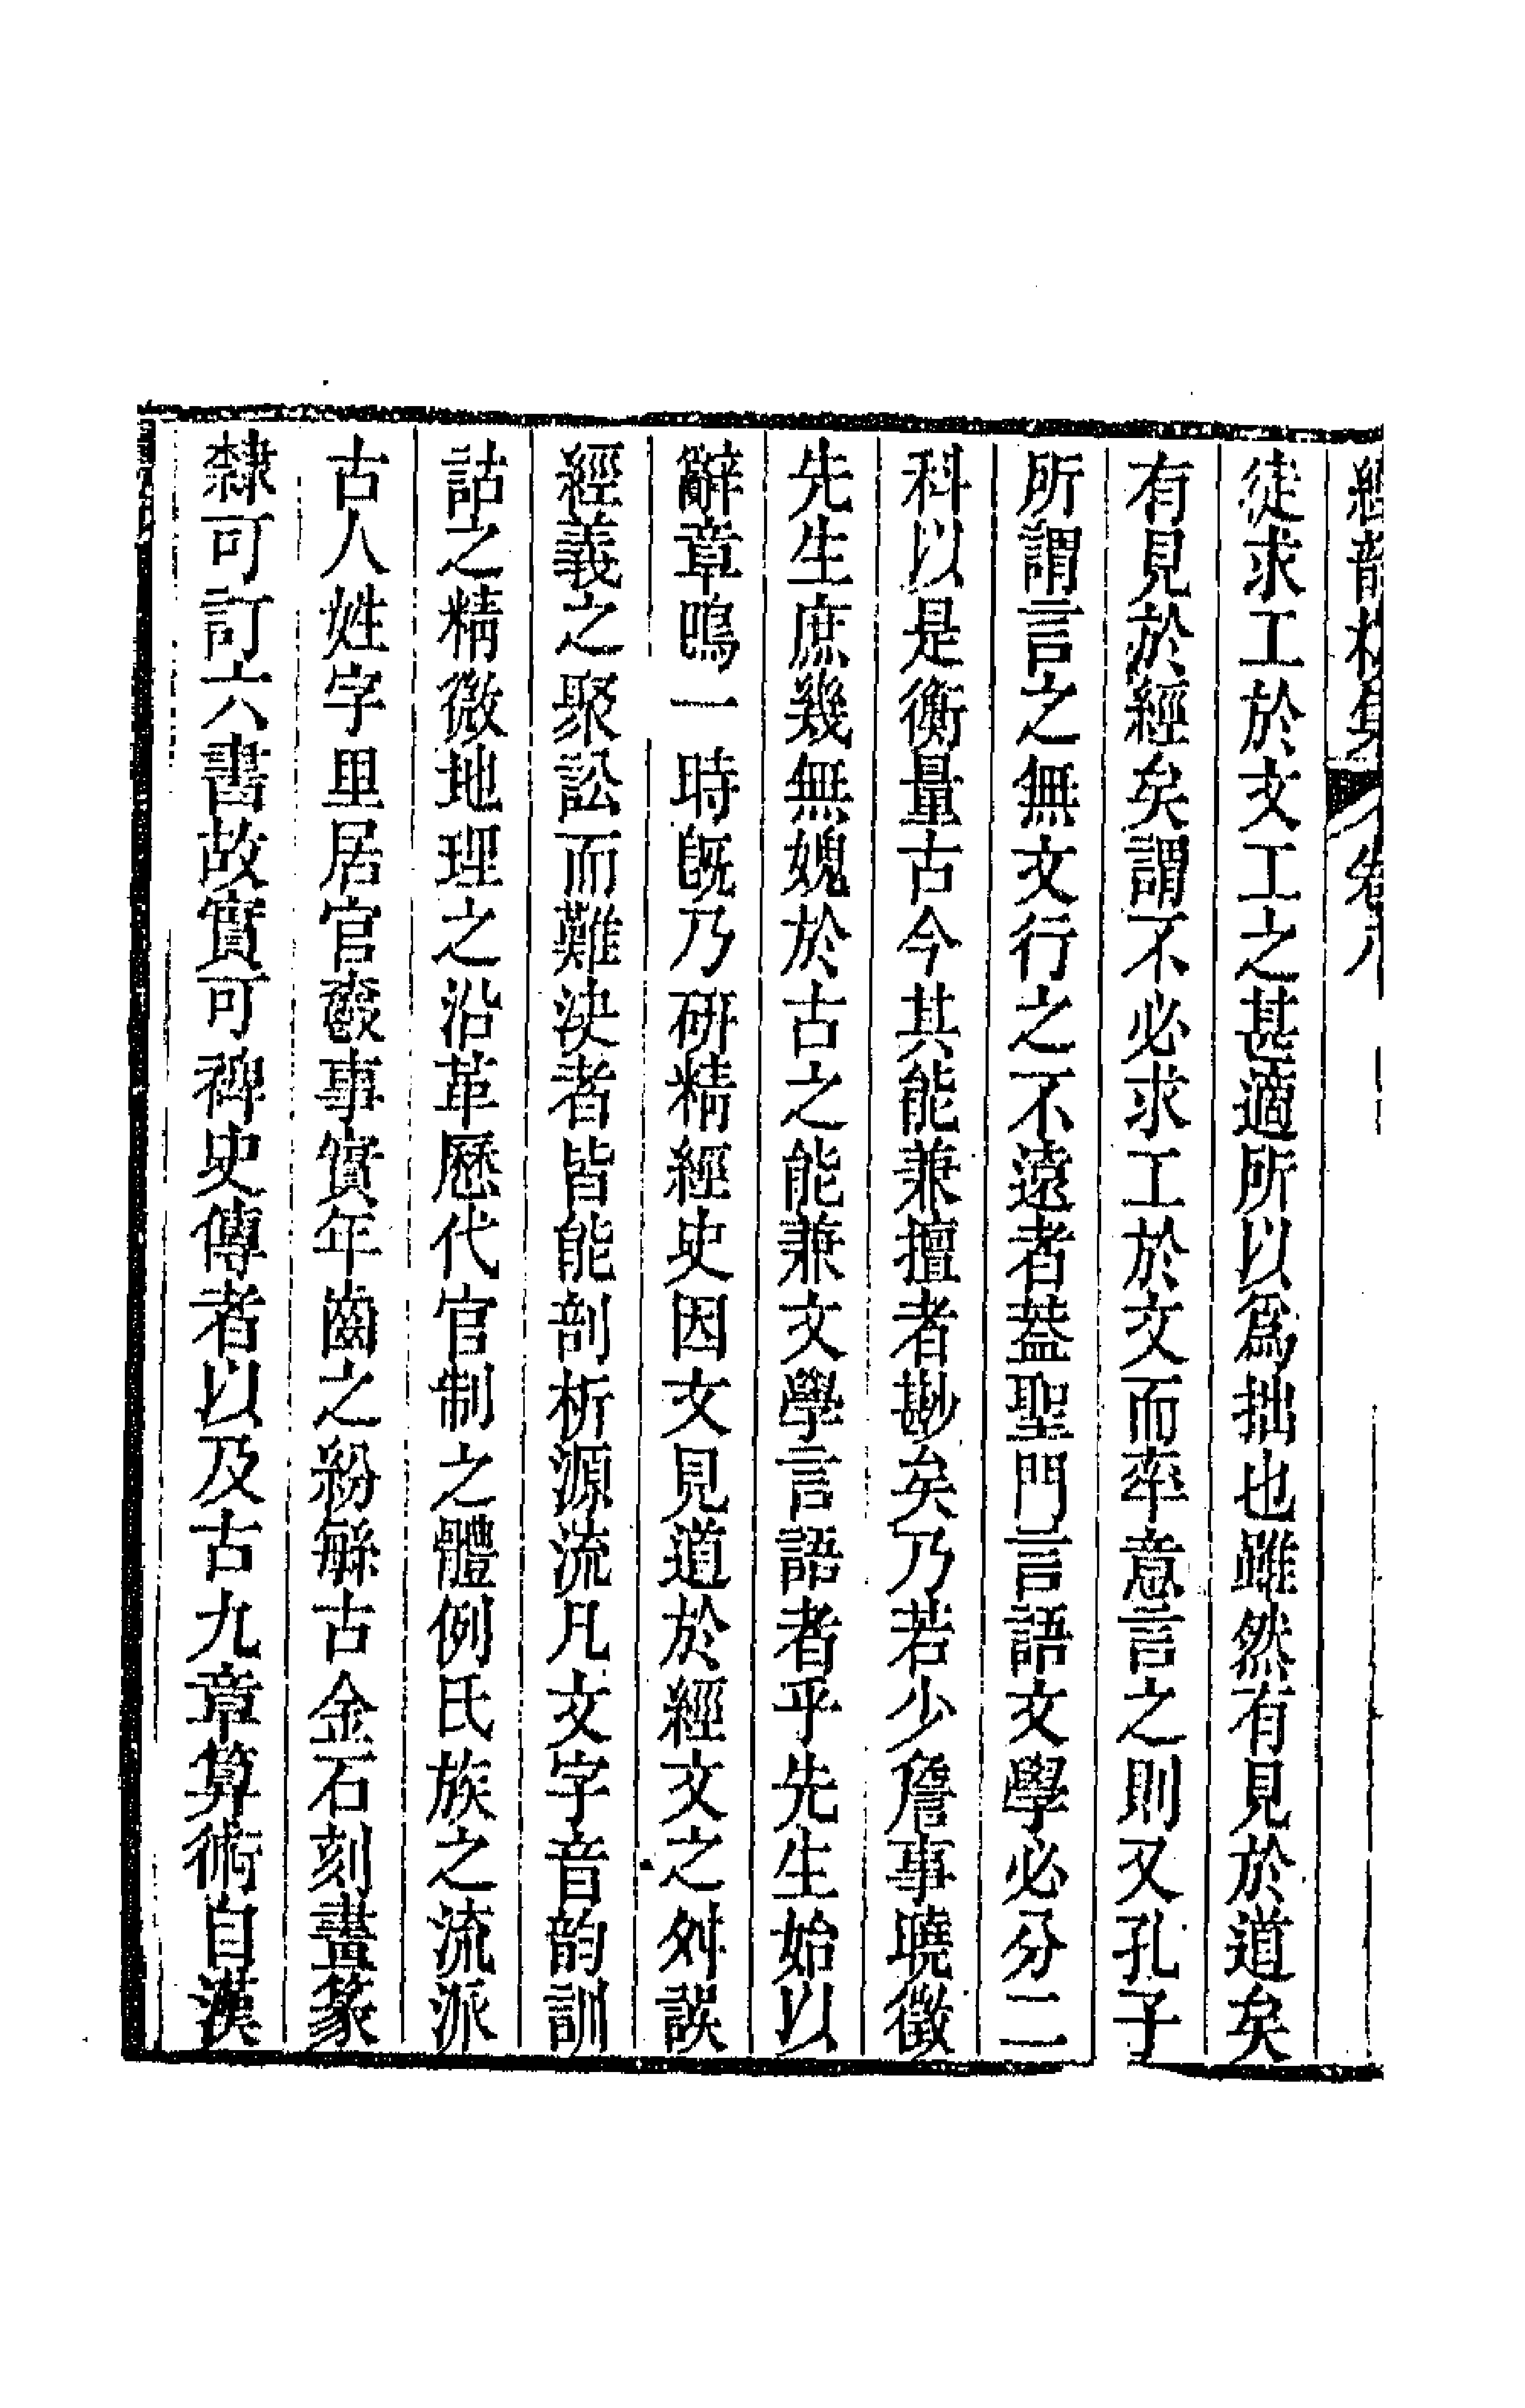 經韵樓集 卷八
徒求工於文工之甚適所以爲拙也雖然有見於道矣
有見於經矣謂不必求工於文而率意言之則又孔子
所謂言之無文行之不遠者葢聖門言語文學必分二
科以是衡量古今其能兼擅者尟矣乃若少詹事曉徵
先生庶幾無媿於古之能兼文學言語者乎先生始以
辭章鳴一時旣乃硏精經史因文見道於經文之舛誤
經義之聚訟而難決者皆能剖析源流凡文字音韵訓
詁之精微地理之沿革歷代官制之體例氏族之流派
古人姓字里居官爵事實年齒之紛緐古金石刻畫篆
隸可訂六書故實可裨史傳者以及古九章算術自漢